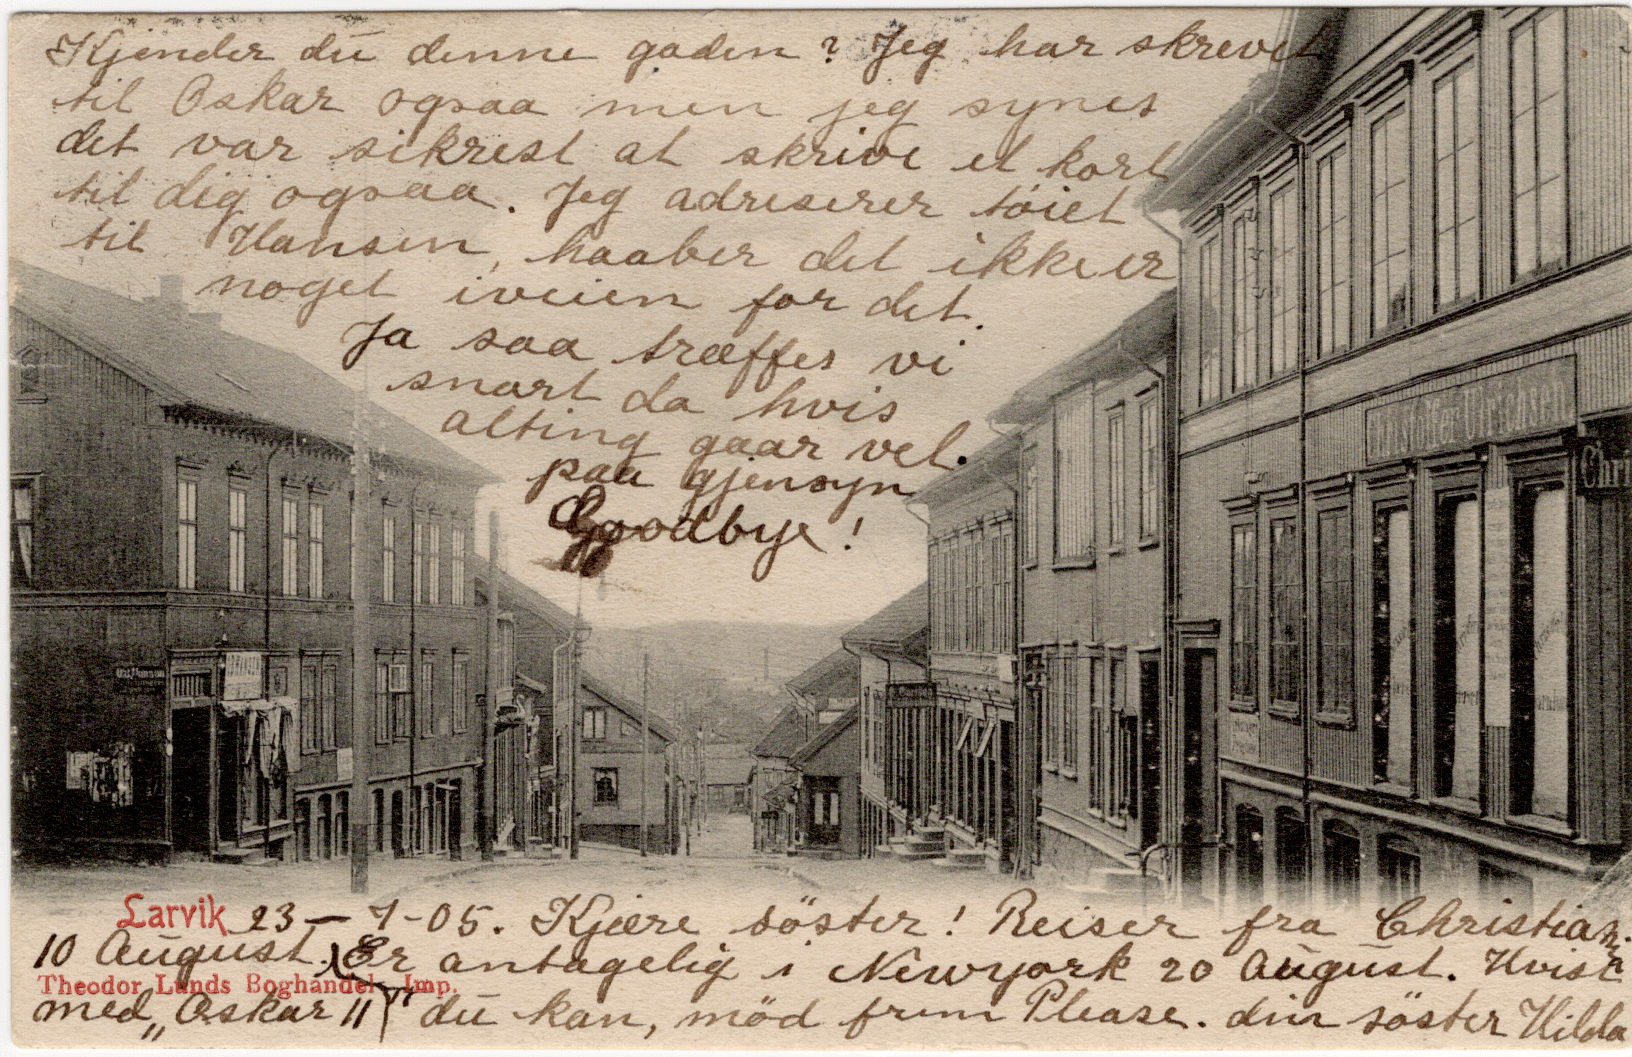 Kjender du denne gaden? Jeg har skrevet
til Oskar ogsaa men jeg synes
det var sikrest at skrive et kort
til dig ogsaa. Jeg adreserer töiet
til Hansen, haaber det ikke er
noget iveien for det.
Ja saa træffes vi
snart da hvis
alting gaar vel.
paa gjensyn
Goodbye!
Christoffer Ulrichsen
Chri
Larvik 23–7–05. Kjære söster! Reiser fra Christiania
10 August. Er antagelig i Newyork 20 August. Hvis
Theodor Lunds Boghandel Imp.
med „Oskar II" du kan, möd frem Please. din söster Hilda